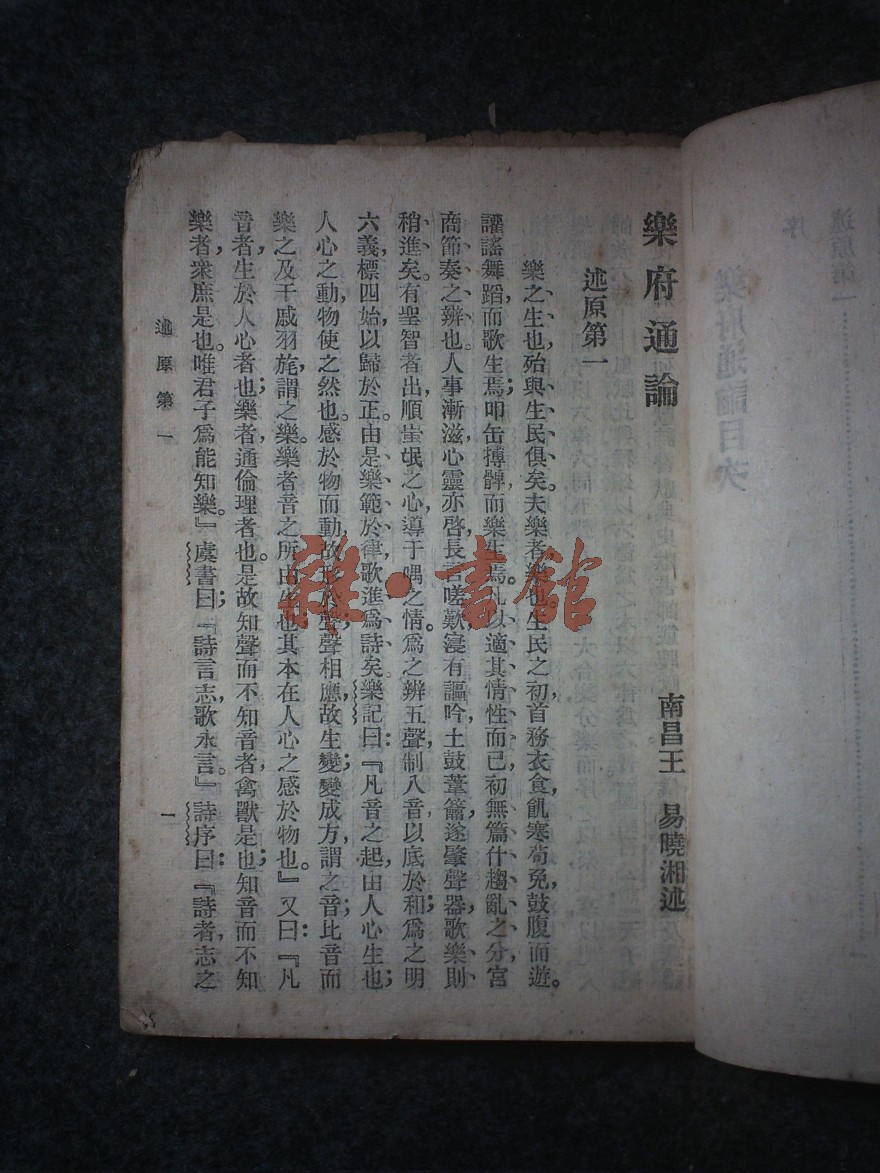 樂府通論
南昌王 易曉湘述
述原第一
樂之生也殆與生民俱矣。夫樂者樂也。生民之初首務衣食飢寒茍免鼓腹而遊。
讙謠舞蹈而歌生焉叩缶搏髀而樂生焉。凡以適其情性而已初無篇什趨亂之分宮
商節奏之辨也。人事漸滋心靈亦啓長言嗟歎寖有謳吟土鼓葦籥遂肇聲器歌樂則
稍進矣。有聖智者出順蚩氓之心導于喁之情。爲之辨五聲制八音以底於和爲之明
六義標四始以歸於正。由是樂範於律歌進爲詩矣。樂記曰：『凡音之起，由人心生也；
人心之動，物使之然也。感於物而動，故形於聲；聲相應，故生變；變成方，謂之音；比音而
樂之及干戚羽旄，謂之樂。樂者音之所由生也其本在人心之感於物也。』又曰：『凡
音者，生於人心者也；樂者，通倫理者也。是故知聲而不知音者，禽獸是也；知音而不知
樂者，衆庶是也。唯君子爲能知樂。』虞書曰：『詩言志，歌永言。』詩序曰：『詩者，志之
述原第一
一
雜·書館
樂府通論目次
序
述原第一